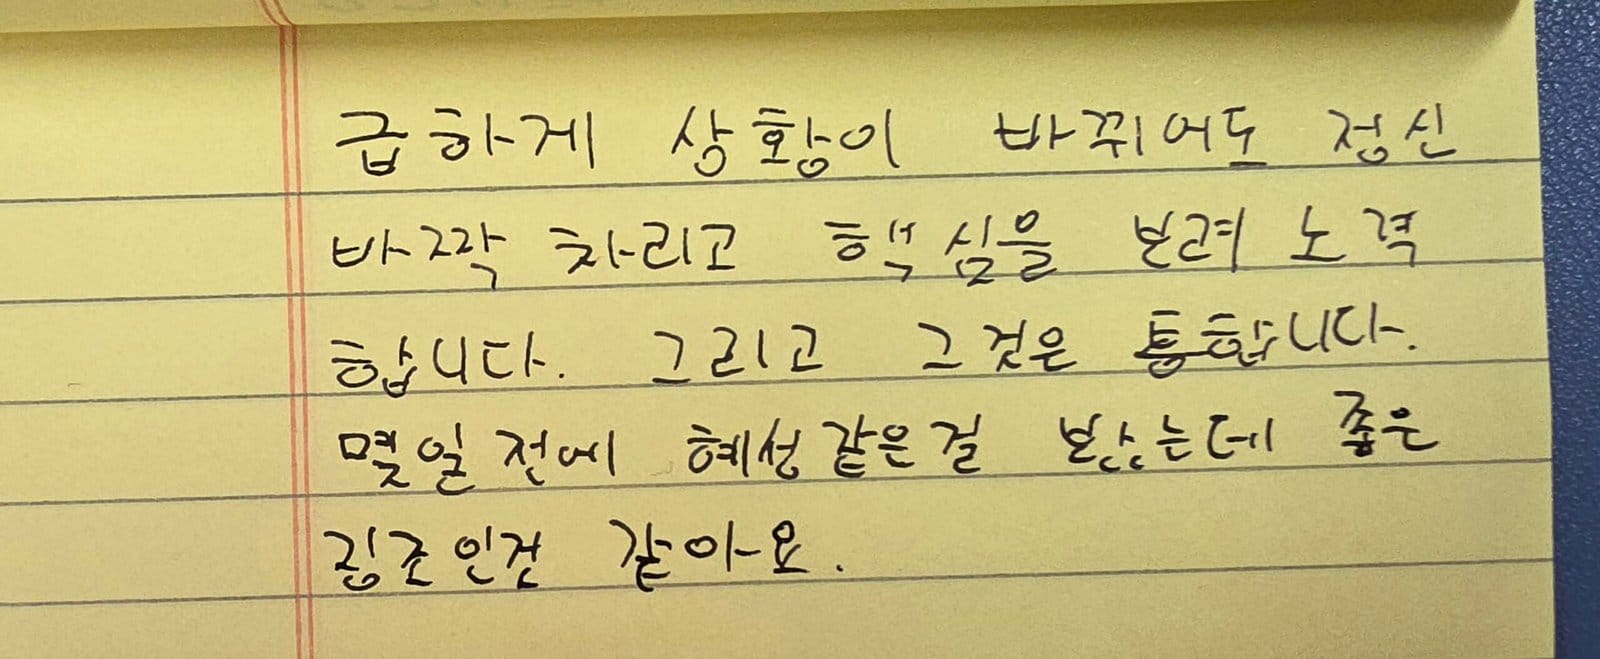 급하게 상황이 바뀌어도 정신
바짝 차리고 핵심을 보려 노력
합니다. 그리고 그것은 통합니다.
몇일 전에 혜성같은걸 봤는데 좋은
징조인건 같아요.